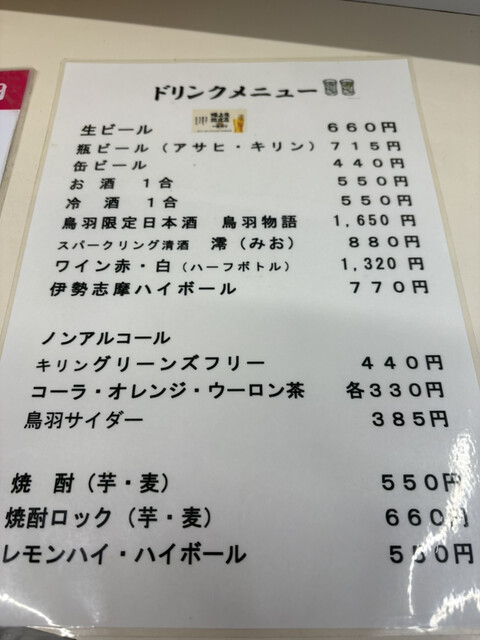 ドリンクメニュー
生ビール 660円
瓶ビール(アサヒ・キリン) 715円
缶ビール 440円
お酒 1合 550円
冷酒 1合 550円
鳥羽限定日本酒 鳥羽物語 1,650円
スパークリング清酒 澪(みお) 880円
ワイン赤・白(ハーフボトル) 1,320円
伊勢志摩ハイボール 770円
ノンアルコール
キリングリーンズフリー 440円
コーラ・オレンジ・ウーロン茶 各330円
鳥羽サイダー 385円
焼 酎(芋・麦) 550円
焼酎ロック(芋・麦) 660円
レモンハイ・ハイボール 550円